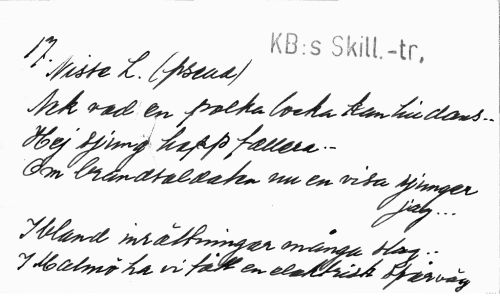 17.
KB:s Skill.-tr,
Nisse L. (pseud)
Nek vad en polka locka kan till dans..
Hej sjung hopp fallera..
Om brandsoldaten nu en visa sjunger
jag...
Ibland inrättningar många slag..
I Malmö ha vi fått en elektrisk spårväg